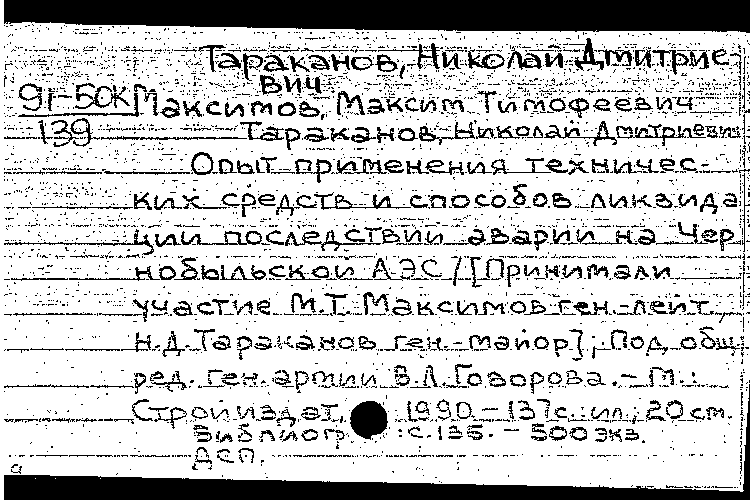 Тараканов, Николай Дмитрие-
вич
9г-50К Максимов, Максим Тимофеевич
139 Тараканов, Николай Дмитриевич
Опыт применения техничес-
ких средств и способов ликвида
ции последствий аварии на Чер
нобыльской АЭС / [Принимали
участие М.Т. Максимов ген.-лейт.,
Н.Д. Тараканов ген.-майор]; Под общ.
ред. ген. армии В.Л. Говорова. - М.:
Стройиздат, 1990. - 137с.: ил.; 20 см.
Библиогр : с.135. - 500 экз.
ДСП.
a